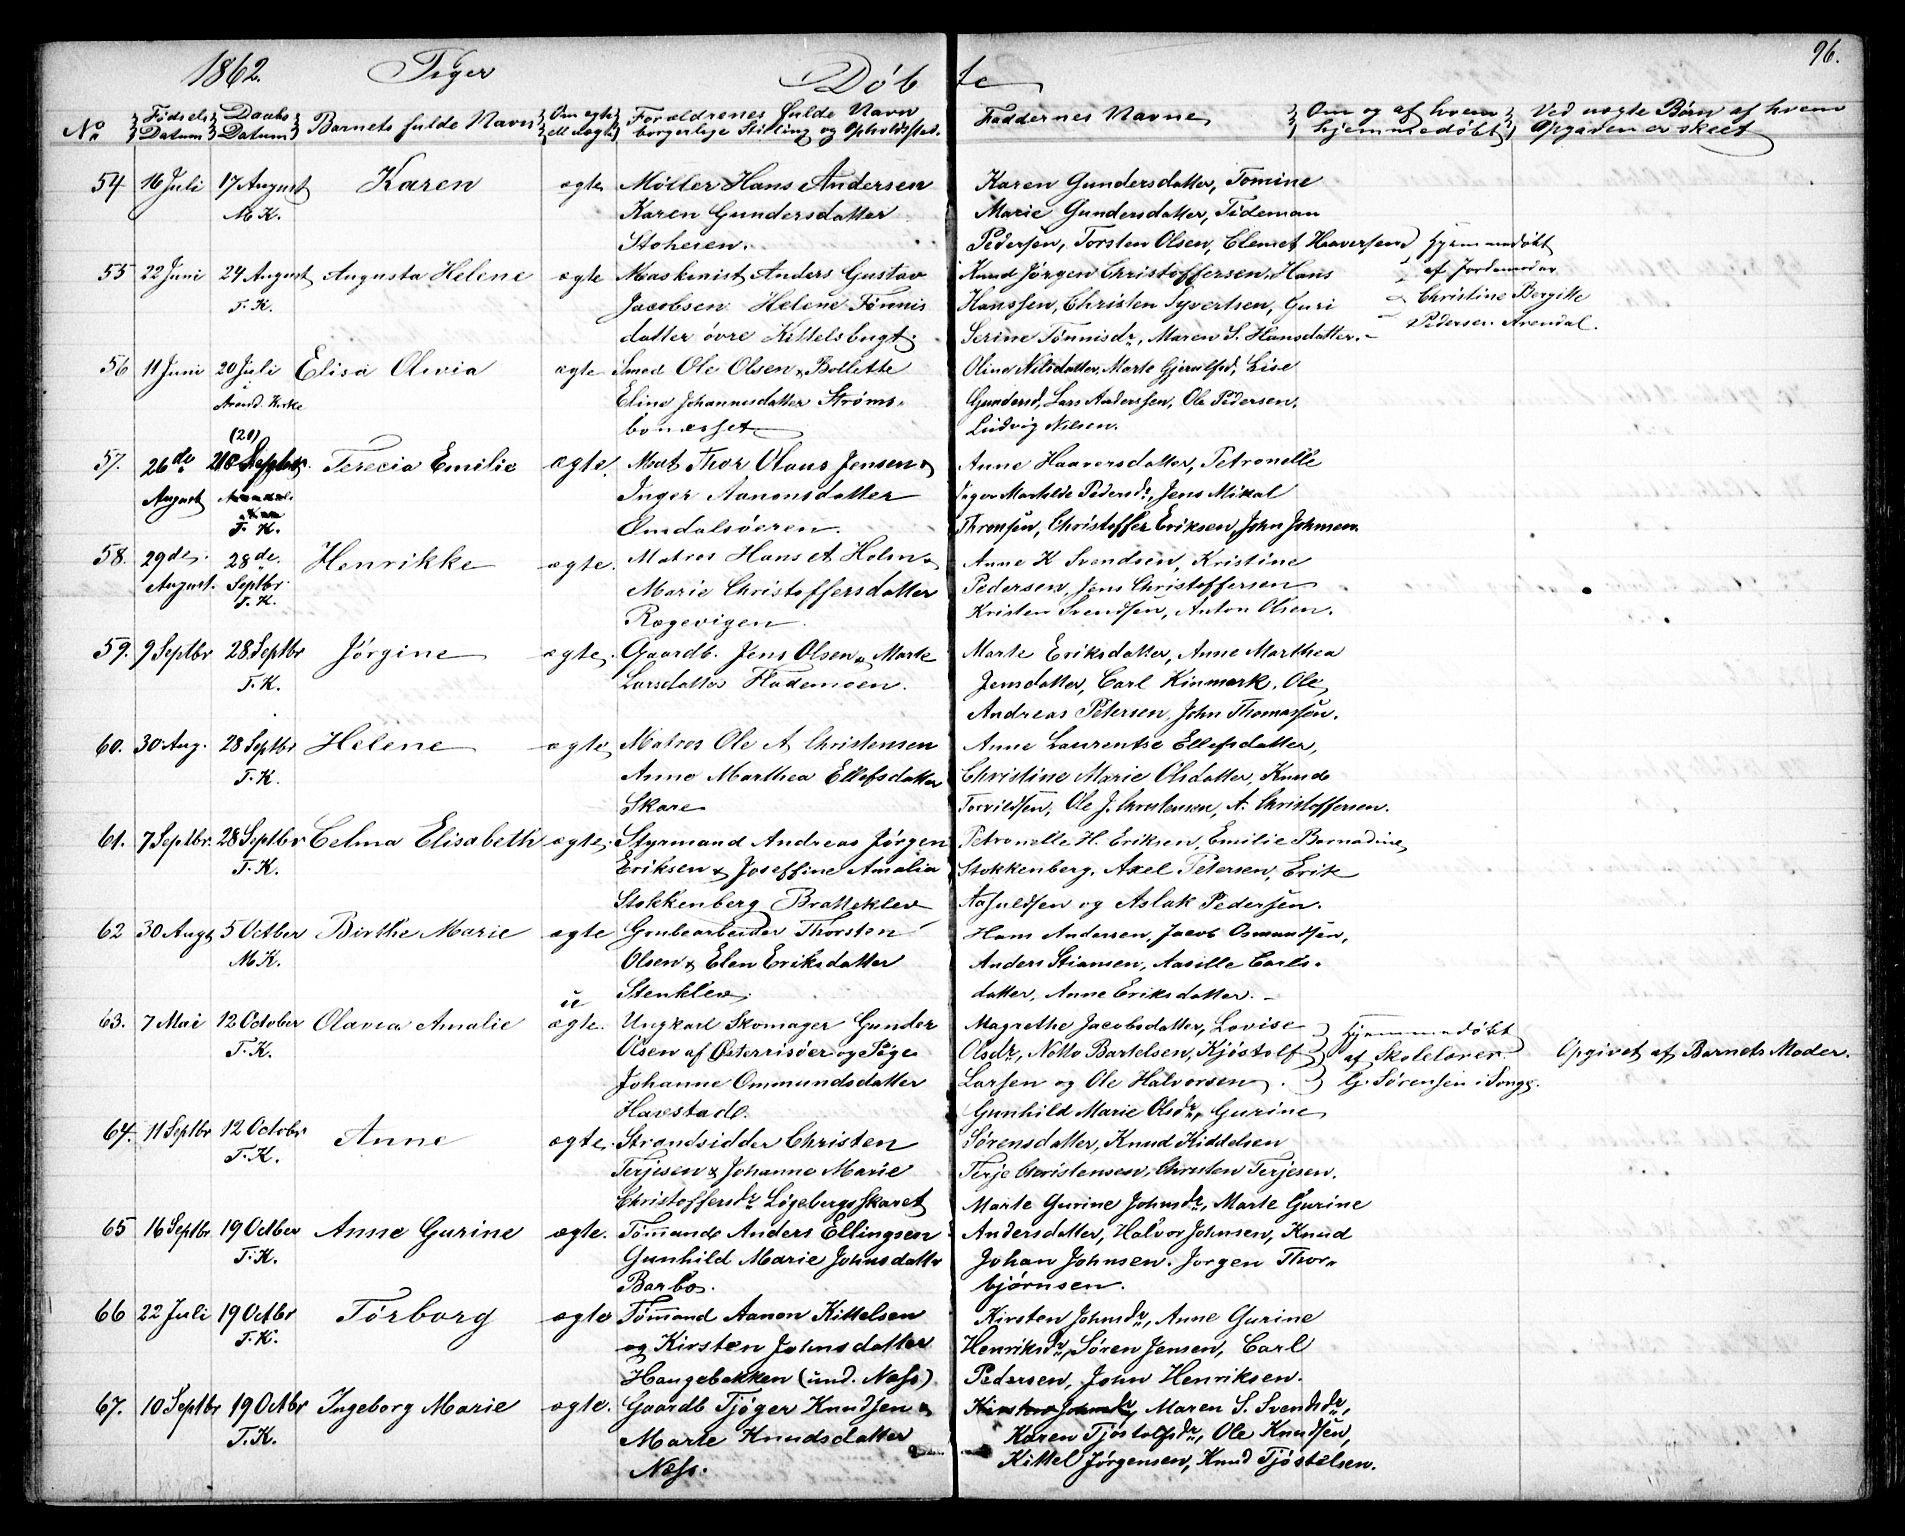 1862. Piger Døbte 96.
No Fødsels Datum Daabs Datum Barnets fulde Navn Om ægte ell. uægte Forældrenes fulde Navn borgerlige Stilling og Opholdssted. Faddernes Navne Om og af hvem hjemmedøbt Ved uægte Børn af hvem Opgaven er skeet
54 16 Juli 17 August Karen ægte Møller Hans Andersen Karen Gundersdatter, Tomine
M K. Karen Gundersdatter Marie Gundersdatter, Tideman
Stoheien. Pedersen, Torsten Olsen, Clemet Haaversen
55 22 Juni 24 August Augusta Helene ægte Maskinist Anders Gustav Knud Jørgen Christoffersen, Hans Hjemmedøbt
T. K. Jacobsen Helene Tønnis Hanssen, Christen Syvertsen, Guri af Jordemoder
datter øvre Kittelsbugt. Serine Tønnisdr, Maren S. Hansdatter. Christine Bergitte
Pedersen Arendal.
56 11 Juni 20 Juli Elisa Olivia ægte Smed Ole Olsen & Bollette Olina Nilsdatter, Marte Gjerulfsd, Lise
i Arend. Kirke Eline Johannesdatter Strøms- Gundersd, Lars Anderssen, Ole Pedersen,
bonesset Ludvig Nilsen.
(20)
57. 26de Septbr. Terecia Emilie ægte. Mat Thor Olaus Jensen & Anne Haaversdatter, Petronelle
August Inger Aanonsdatter Inger Mathilde Pedersdr, Jens Mikal
T. K. Omdalsøeren. Thronsen, Christoffer Eriksen, John Johnsen.
58. 29de 28de Henrikke ægte. Matros Hans A Holm & Anne K Svendsen, Kristine
August. Septbr. Marie Christoffersdatter Pedersen, Jens Christoffersen
T. K. Rægevigen. Kristen Svendsen, Anton Olsen.
59. 9 Septbr 28 Septbr Jørgine ægte. Gaardb. Jens Olsen & Marte Marte Eriksdatter, Anne Marthea
T. K. Larsdatter Flademoen. Jensdatter, Carl Kinmark, Ole
Andreas Petersen, John Thomassen.
60. 30 Aug. 28 Septbr Helene ægte Matros Ole A Christensen Anne Laurentse Ellefsdatter,
T. K. Anne Marthea Ellefsdatter Christine Marie Olsdatter, Knud
Skare Torvildsen, Ole J. Christensen, A. Christoffersen.
61. 7 Septbr. 28 Septbr Celma Elisabeth ægte. Styrmand Andreas Jørgen Petronelle H. Eriksen, Emilie Barnadine
T. K. Eriksen & Joseffine Amalia Stokkenberg, Axel Petersen, Erik
Stokkenberg Bratteklev Aasuldsen og Aslak Pedersen.
62 30 Augt 5 Octber Birthe Marie ægte Grubearbeider Thorsten Hans Andersen, Jacob Osmundsen,
M K. Olsen & Elen Eriksdatter Anders Stiansen, Aasille Carls-
Stenklev. datter, Anne Eriksdatter.
63. 7 Mai 12 October Olava Amalie uægte. Ungkarl Skomager Gunder Magrethe Jacobsdatter, Lovise Hjemmedøbt
T. K. Olsen af Østerrisøer og Pige Olsdr, Notto Bartelsen, Kjøstolf af Skolelærer Opgivet af Barnets Moder.
Johanne Ommundsdatter Larsen og Ole Halvorsen. G. Sørensen i Songe.
Havstad. Gunhild Marie Olsdr, Gurine
64. 11 Septbr 12 Octobr Anne ægte. Strandsidder Christen Sørensdatter, Knud Kiddelsen
T. K. Terjesen & Johanne Marie Terje Christensen, Christen Terjesen.
Christoffersdr Løgebergsskaret Marte Gurine Johnsdr, Marte Gurine
65 16 Septbr 19 Octber Anne Gurine ægte. Tømand Anders Ellingsen Andersdatter, Halvor Johnsen, Knud
T. K. Gunhild Marie Johnsdatter Johan Johnsen. Jørgen Thor-
Barbo. bjørnsen.
66 22 Juli 19 Octbr Tørborg ægte Tømand Aanon Kittelsen Kirsten Johnsdr, Anne Gurine
T. K. og Kirsten Johnsdatter Henriksdr, Søren Jensen, Carl
Haugebakken (und. Næss) Pedersen, John Henriksen.
67. 10 Septbr 19 Octbr Ingeborg Marie ægte. Gaardb Tjøger Knudsen & Kirsten Johnsdr, Maren S. Svendsdr,
T. K. Marte Knudsdatter Karen Tjøstolfsdr, Ole Knudsen,
Næss. Kittel Jørgensen, Knud Tjøstelsen.